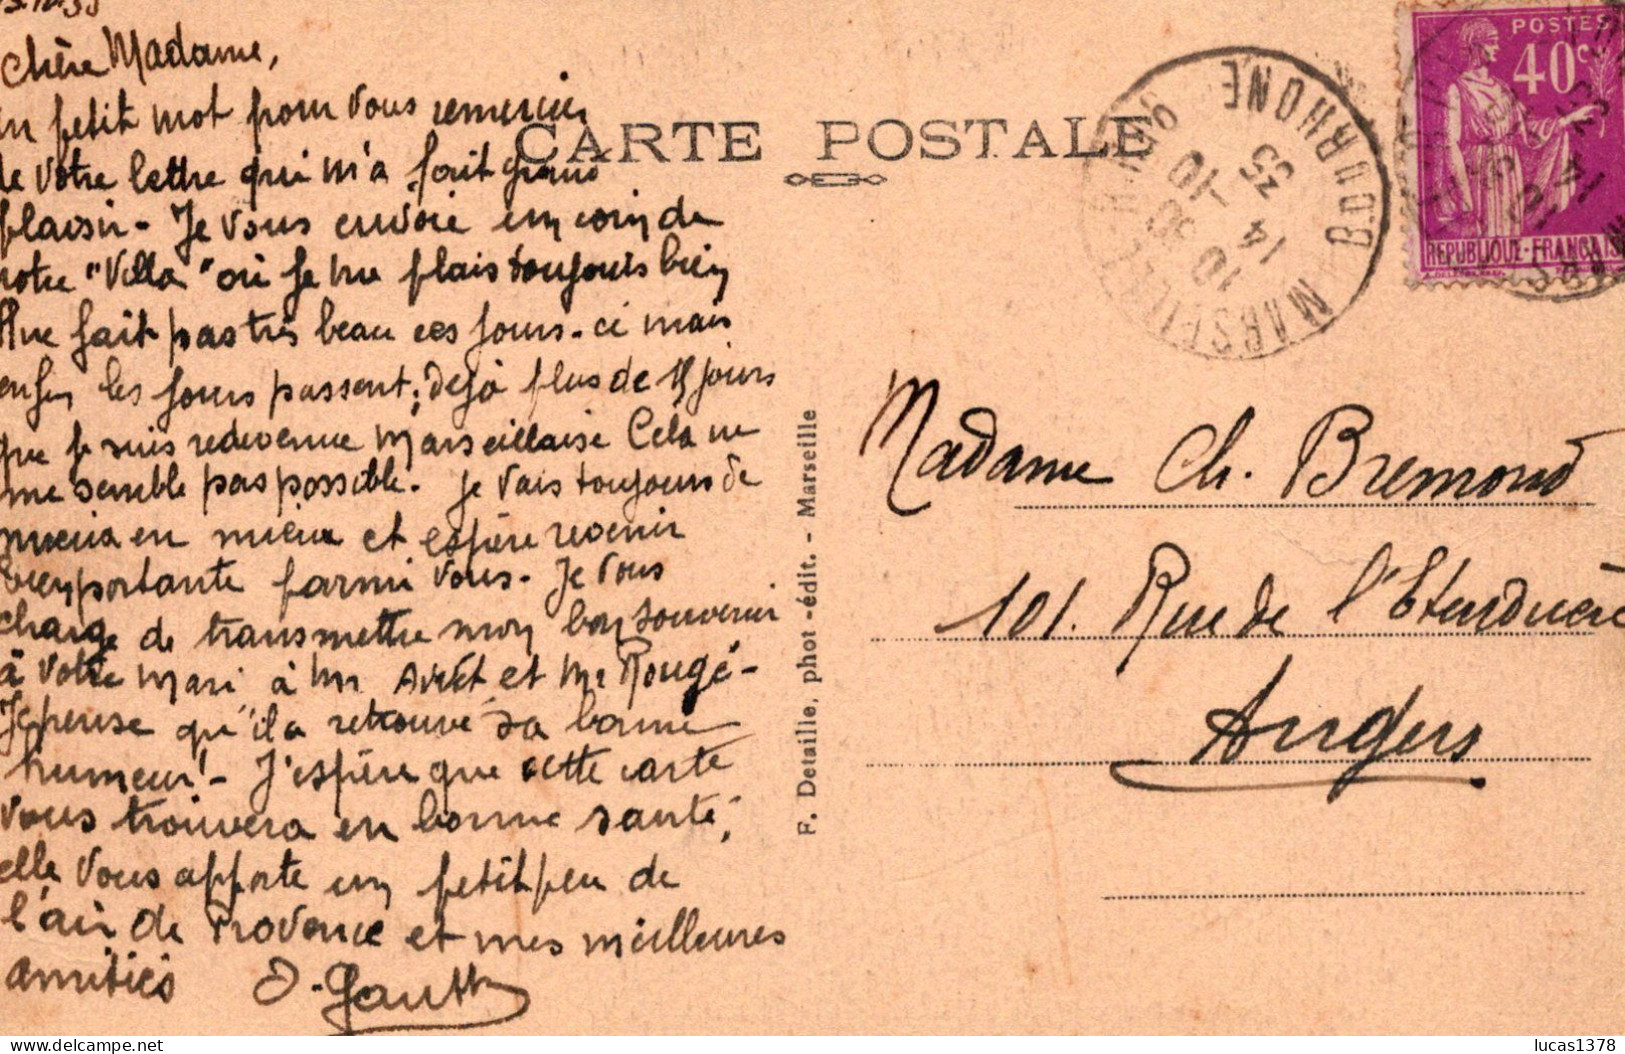 Chère Madame,
un petit mot pour vous remercier
de votre lettre qui m'a fait grand
plaisir - Je vous envoie un coin de
notre "Villa" où je me plais toujours bien
Il ne fait pas très beau ces jours-ci mais
enfin les jours passent; déjà plus de 15 jours
que je suis redevenue marseillaise Cela ne
me semble pas possible. Je vais toujours de
mieux en mieux et espère revenir
bien portante parmi vous. Je vous
charge de transmettre mon bon souvenir
à votre mari à Mr et Mr Rougé -
Je pense qu'il a retrouvé sa bonne
humeur! - J'espère que cette carte
vous trouvera en bonne santé;
elle vous apporte un petit peu de
l'air de Provence et mes meilleures
amitiés
CARTE POSTALE
F. Detaille, phot.-édit. - Marseille
MARSEILLE
B. DU RHONE
10 30
14 -10
POSTES
40c
REPUBLIQUE-FRANÇAISE
Madame Ch. Bremond
101. Rue de
Angers
lucas1378